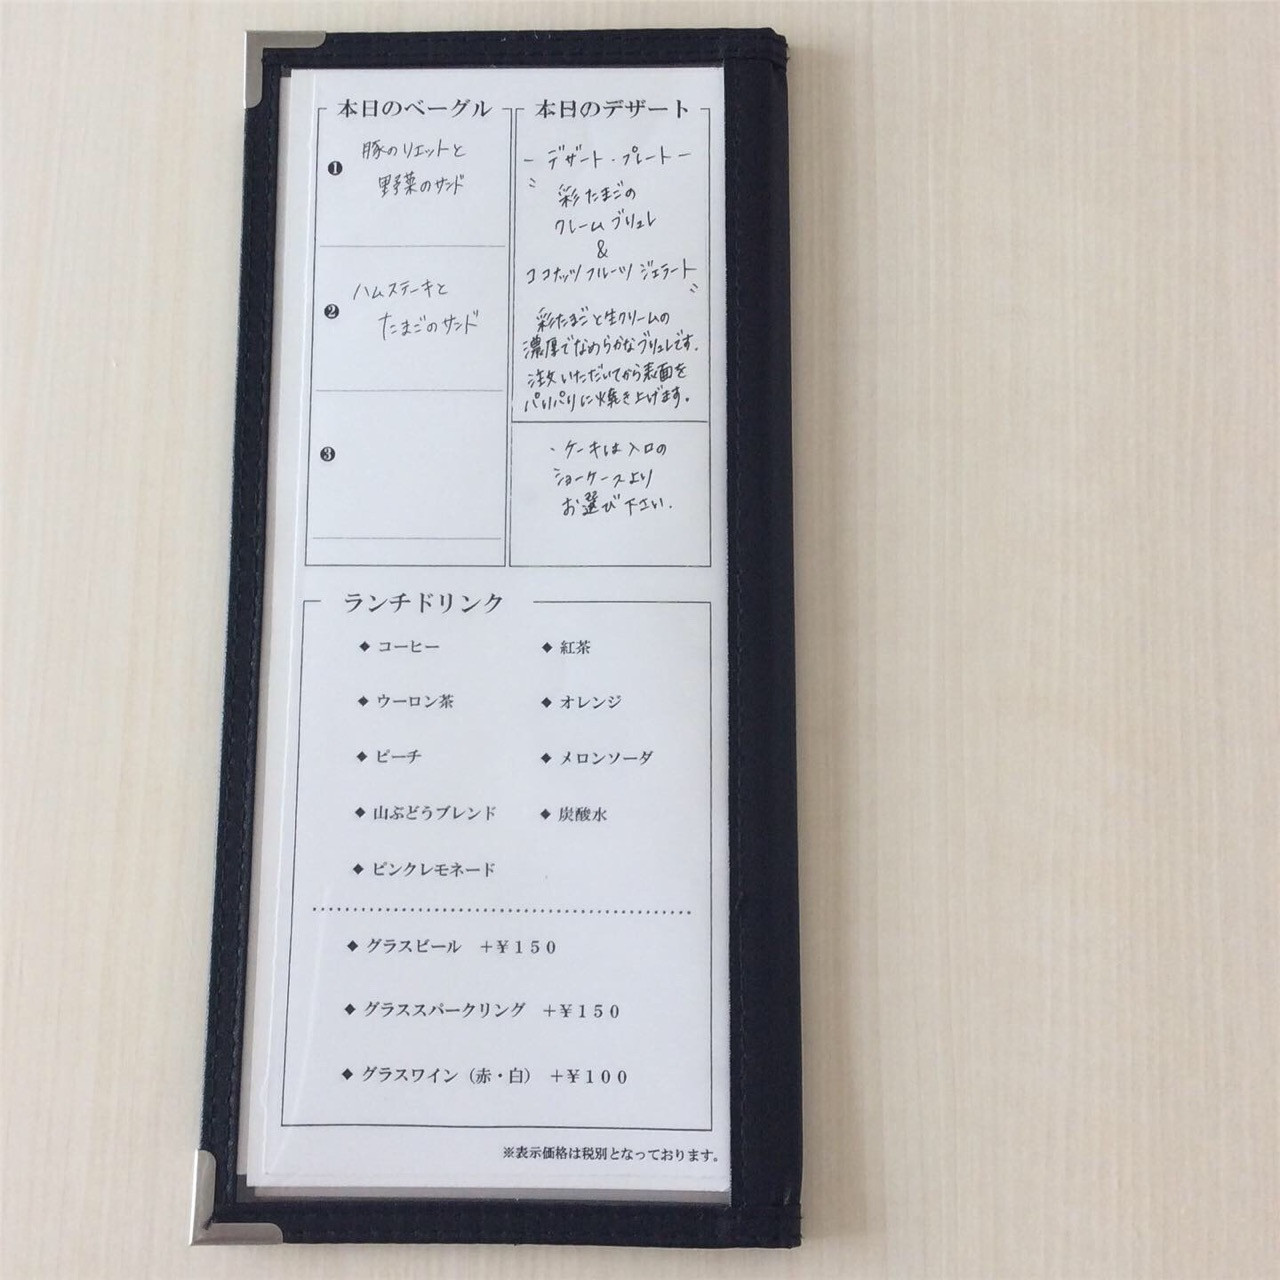 本日のベーグル
❶ 豚のリエットと
野菜のサンド
❷ ハムステーキと
たまごのサンド
❸
本日のデザート
ー デザート・プレート ー
〃 彩たまごの
クレームブリュレ
&
ココナッツフルーツジェラート 〃
彩たまごと生クリームの
濃厚でなめらかなブリュレです.
注文いただいてから表面を
パリパリに焼き上げます。
・ケーキは入口の
ショーケースより
お選び下さい.
ランチドリンク
◆ コーヒー ◆ 紅茶
◆ ウーロン茶 ◆ オレンジ
◆ ピーチ ◆ メロンソーダ
◆ 山ぶどうブレンド ◆ 炭酸水
◆ ピンクレモネード
◆ グラスビール +¥150
◆ グラススパークリング +¥150
◆ グラスワイン（赤・白） +¥100
※表示価格は税別となっております。